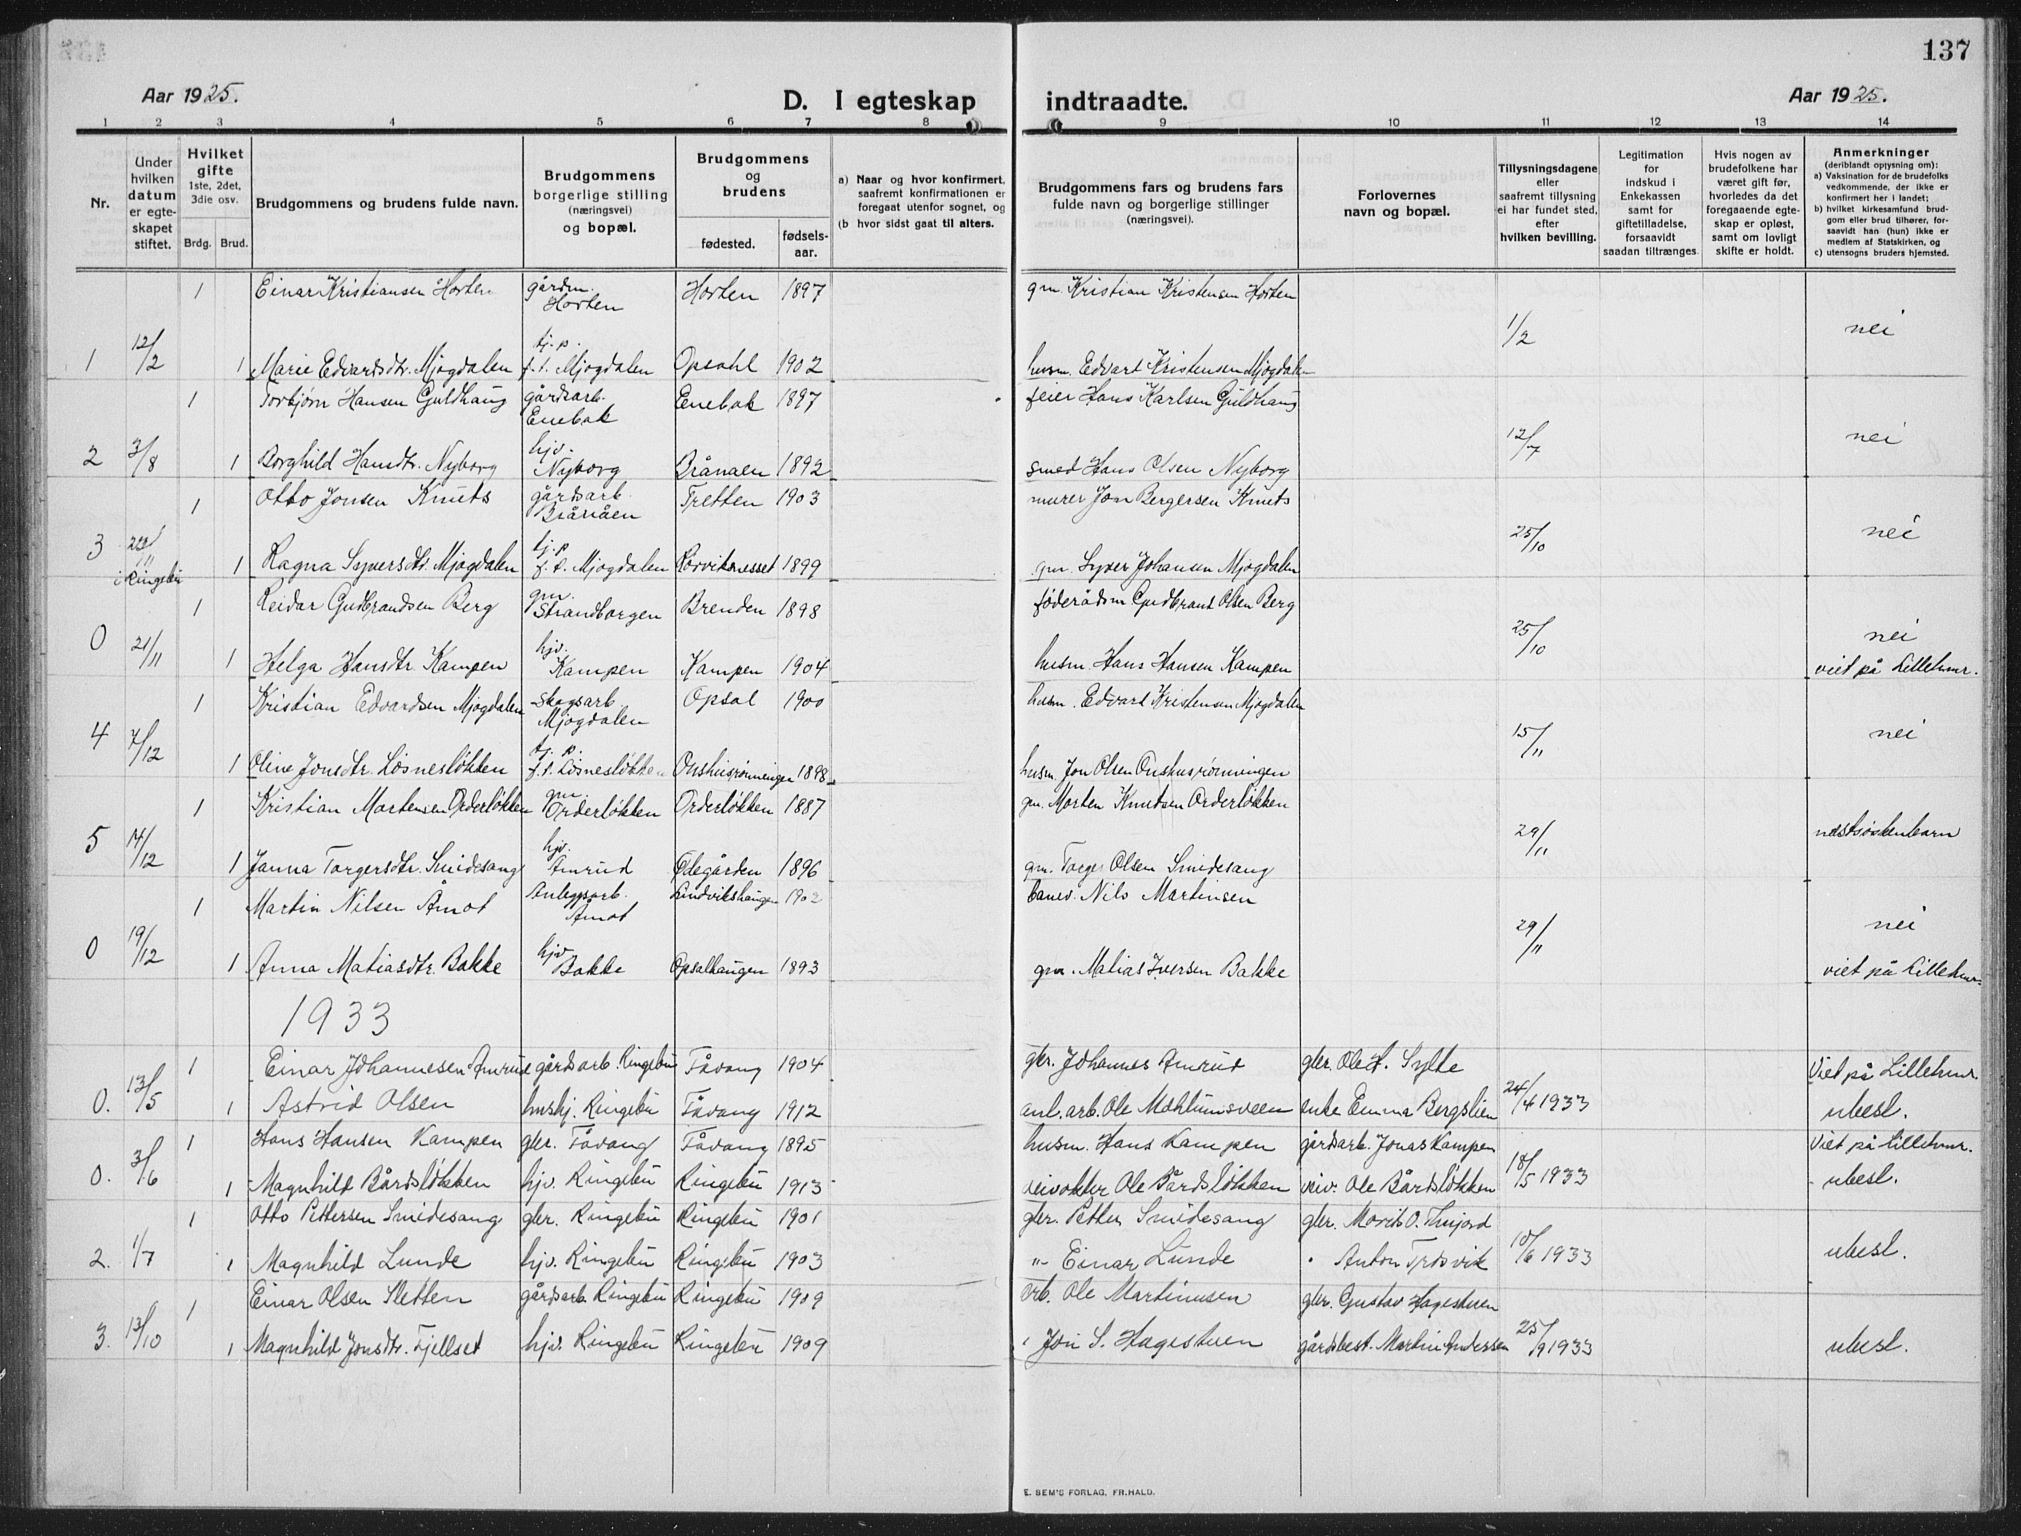 137
Aar 1925.
D. I egteskap indtraadte.
Aar 1925.
1 2 3 4 5 6 7 8 9 10 11 12 13 14
Nr.
Under hvilken datum er egte-skapet stiftet.
Hvilket gifte 1ste, 2det, 3die osv.
Brdg. Brud.
Brudgommens og brudens fulde navn.
Brudgommens borgerlige stilling (næringsvei) og bopæl.
Brudgommens og brudens
fødested. fødsels-aar.
a) Naar og hvor konfirmert, saafremt konfirmationen er foregaat utenfor sognet, og
(b hvor sidst gaat til alters.
Brudgommens fars og brudens fars fulde navn og borgerlige stillinger (næringsvei).
Forlovernes navn og bopæl.
Tillysningsdagene eller saafremt tillysning ei har fundet sted, efter hvilken bevilling.
Legitimation for indskud i Enkekassen samt for giftetilladelse, forsaavidt saadan tiltrænges
Hvis nogen av brudefolkene har været gift før, hvorledes da det foregaaende egte-skap er opløst, samt om lovligt skifte er holdt.
Anmerkninger (deriblandt opjysning om):
a) Vaksination for de brudefolks vedkommende, der ikke er konfirmert her i landet;
b) hvilket kirkesamfund brud-gom eller brud tilhører, for-saavidt han (hun) ikke er medlem af Statskirken, og
c) utensogns bruders hjemsted.
1 Einar Kristiansen Horten gårdm. Horten Horten 1897 gm. Kristian Kristensen Horten
1 12/2 1 Marie Edvardsdtr. Mjogdalen tj.p. f.t. Mjogdalen Opsahl 1902 husm. Edvart Kristensen Mjogdalen 1/2 nei
1 Torbjørn Hansen Guldhaug gårdsarb. Enebak Enebak 1897 feier Hans Karlsen Guldhaug
2 3/8 1 Borghild Hansdtr. Nyborg hjv. Nyborg Brånåen 1892 smed Hans Olsen Nyborg 12/7 nei
1 Otto Jonsen Knuts gårdsarb. Brånåen Tretten 1903 murer Jon Bergersen Knuts
3 i Ringebu 1 Ragna Syversdtr. Mjogdalen tj.p f.t. Mjogdalen Rørviknesset 1899 gm. Syver Johansen Mjogdalen 25/10 nei
1 Reidar Gudbrandsen Berg gm. Strandborgen Brenden 1898 føderådsm Gudbrant Olsen Berg
0 21/11 1 Helga Hansdtr. Kampen hjv. Kampen Kampen 1904 husm. Hans Hansen Kampen 25/10 nei viet på Lillehmr.
1 Kristian Edvardsen Mjogdalen skogsarb Mjogdalen Opsal 1900 husm. Edvart Kristensen Mjogdalen
4 7/12 1 Oline Jonsdtr. Losnesløkken tj. p. f.t. Losnesløkken Onshusrønningen 1898 husm. Jon Olsen Onshusrønningen 15/11 nei
1 Kristian Martensen Orderløkken gm. Orderløkken Orderløkken 1887 gm. Morten Knutsen Orderløkken
5 14/12 1 Janna Torgersdtr. Smidesang hjv. Amrud Ødegården 1896 gm. Torger Olsen Smidesang 29/11 nestsøskenbarn
1 Martin Nilsen Åmot Anleggsarb. Åmot Lundvikshaugen 1902 banev. Nils Martinsen
0 19/12 1 Anna Matiasdtr. Bakke hjv Bakke Opsalhaugen 1893 gm. Matias Iversen Bakke 29/11 nei viet på Lillehmr.
1933
1 Einar Johannesen Amrud gårdsarb. Ringebu Fåvang 1904 gbr. Johannes Amrud gbr. Ole H. Sylte Viet på Lillehmr.
0. 13/5 1 Astrid Olsen hushj. Ringebu Fåvang 1912 anl. arb. Ole Mahlumsveen enke Emma Bergslien 24/4 1933 ubesl.
1 Hans Hansen Kampen gbr. Fåvang Fåvang 1895 husm. Hans Kampen gårdsarb. Jonas Kampen Viet på Lillehmr.
0. 3/6 1 Magnhild Bårdsløkken hjv. Ringebu Ringebu 1913 veivokter Ole Bårdsløkken veiv. Ole Bårdsløkken 18/5 1933 ubesl.
1 Otto Pettersen Smidesang gbr. Ringebu Ringebu 1901 gbr. Petter Smidesang gbr.
2. 1/7 1 Magnhild Lunde hjv. Ringebu Ringebu 1903 " Einar Lunde " Anton 10/6 1933 ubesl.
1 Einar Olsen Sletten gårdsarb. Ringebu Ringebu 1909 arb. Ole Martinusen gbr. Gustav Hagestuen
3. 13/10 1 Magnhild Jonsdtr. Fjellset hjv. Ringebu Ringebu 1909 Jon S. Hagestuen gårdbest. Martin Anderssen 25/9 1933 ubesl.
E. SEM'S FORLAG, FR.HALD.